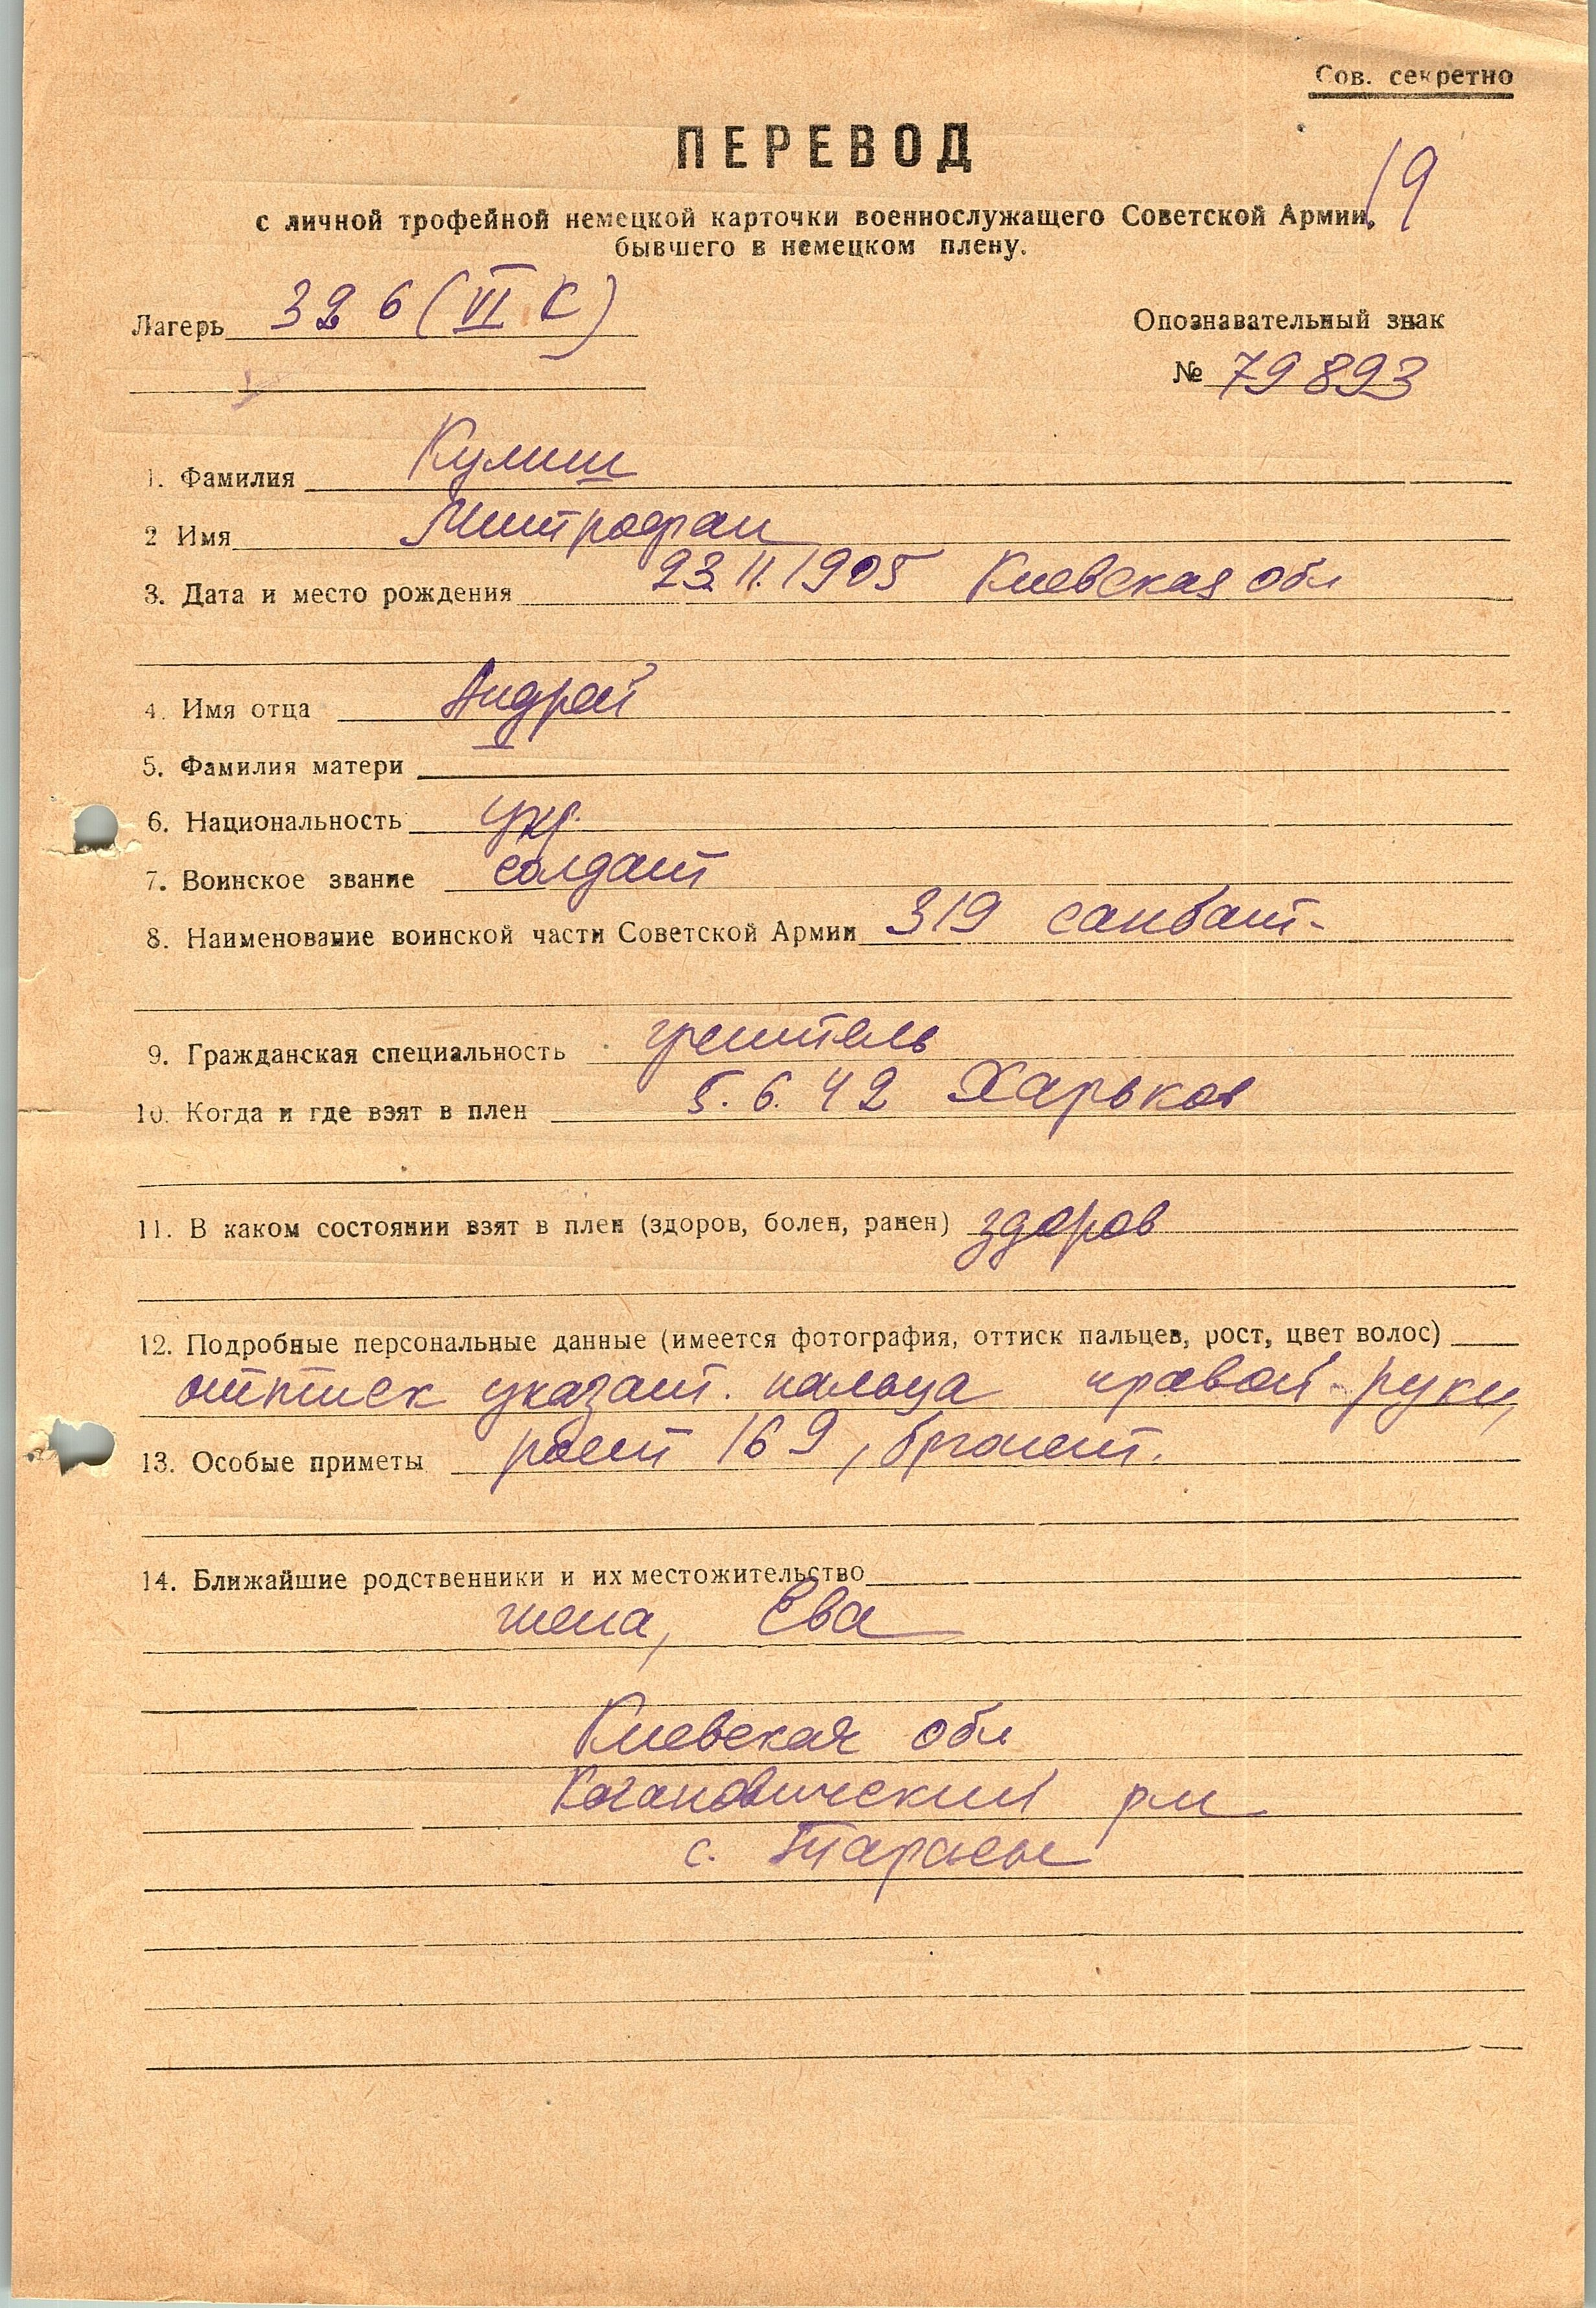 Сов. секретно
ПЕРЕВОД
19
с личной трофейной немецкой карточки военнослужащего Советской Армии,
бывшего в немецком плену.
Лагерь 326 (VI К)
Опознавательный знак
№ 79893
1. Фамилия Кулиш
2 Имя Митрофан
3. Дата и место рождения 23.11.1905 Киевская обл
4. Имя отца Андрей
5. Фамилия матери
6. Национальность укр.
7. Воинское звание солдат
8. Наименование воинской части Советской Армии 319 санбат-
9. Гражданская специальность учитель
10. Когда и где взят в плен 5.6.42 Харьков
11. В каком состоянии взят в плен (здоров, болен, ранен) здоров
12. Подробные персональные данные (имеется фотография, оттиск пальцев, рост, цвет волос)
оттиск указат. пальца правой руки,
13. Особые приметы рост 169, брюнет.
14. Ближайшие родственники и их местожительство
жена, Ева
Киевская обл
Кагановический рн
с.